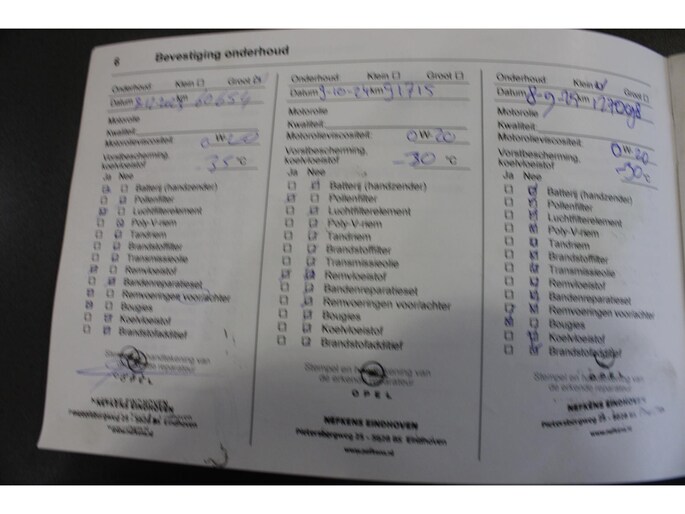 8 Bevestiging onderhoud
Onderhoud Klein ☐ Groot ☑
Datum 8-12-2023 km 60654
Motorolie
Kwaliteit
Motorolieviscositeit: 0 W- 20
Vorstbescherming,
koelvloeistof -35 °C
Ja Nee
Batterij (handzender)
Pollenfilter
Luchtfilterelement
Poly-V-riem
Tandriem
Brandstoffilter
Transmissieolie
Remvloeistof
Bandenreparatieset
Remvoeringen voor/achter
Bougies
Koelvloeistof
Brandstofadditief
Stempel en handtekening van
de erkende reparateur
OPEL
NEFKENS EINDHOVEN
Onderhoud Klein ☐ Groot ☐
Datum 9-10-24 km 91715
Motorolie
Kwaliteit
Motorolieviscositeit: 0 W- 20
Vorstbescherming,
koelvloeistof -30 °C
Ja Nee
Batterij (handzender)
Pollenfilter
Luchtfilterelement
Poly-V-riem
Tandriem
Brandstoffilter
Transmissieolie
Remvloeistof
Bandenreparatieset
Remvoeringen voor/achter
Bougies
Koelvloeistof
Brandstofadditief
Stempel en handtekening van
de erkende reparateur
OPEL
NEFKENS EINDHOVEN
Pietersbergweg 25 - 5628 BS Eindhoven
www.nefkens.nl
Onderhoud Klein ☑ Groot ☐
Datum 8-9-25 km 127098
Motorolie
Kwaliteit
Motorolieviscositeit: 0 W- 20
Vorstbescherming,
koelvloeistof -30 °C
Ja Nee
Batterij (handzender)
Pollenfilter
Luchtfilterelement
Poly-V-riem
Tandriem
Brandstoffilter
Transmissieolie
Remvloeistof
Bandenreparatieset
Remvoeringen voor/achter
Bougies
Koelvloeistof
Brandstofadditief
Stempel en handtekening van
de erkende reparateur
OPEL
NEFKENS EINDHOVEN
www.nefkens.nl